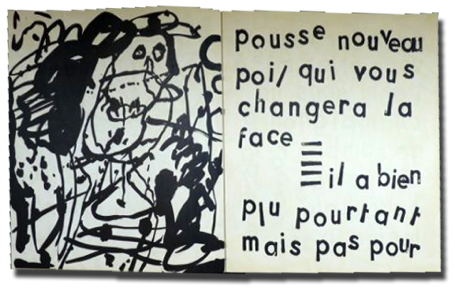 pousse nouveau
poil qui vous
changera la
face
il a bien
plu pourtant
mais pas pour